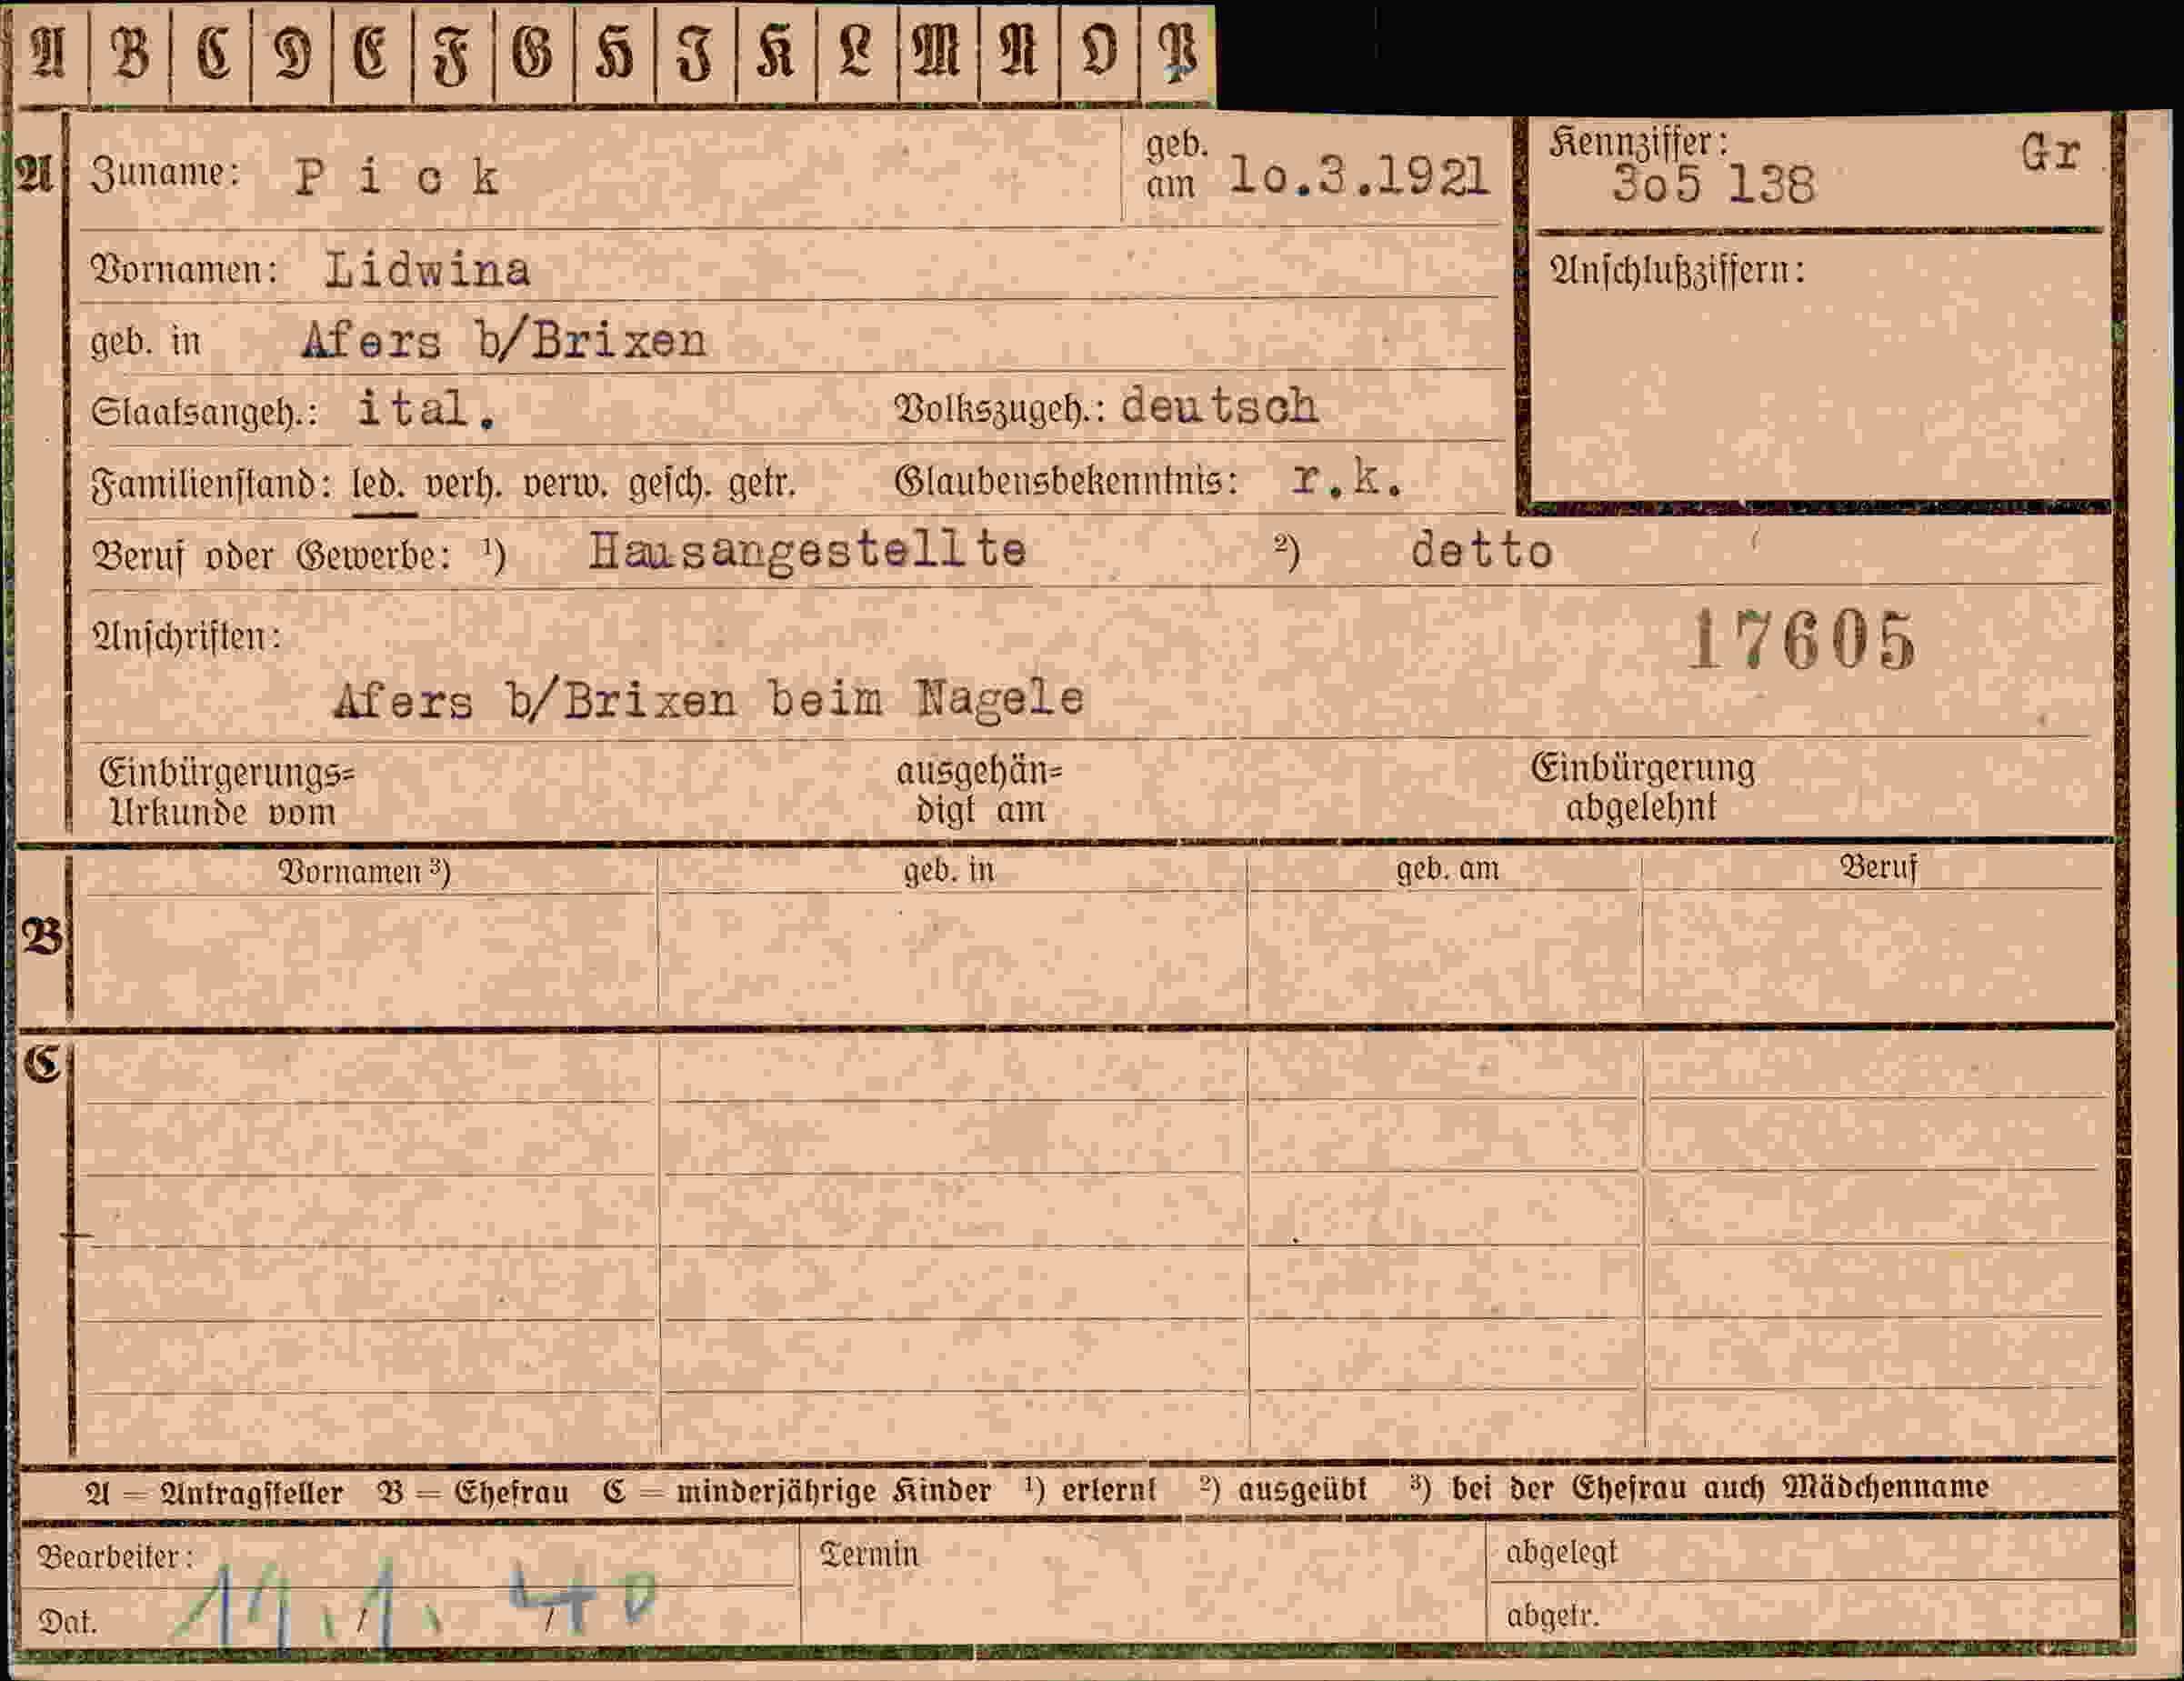 A B C D E F G H I K L M N O P
A Zuname: Pick geb. am 10.3.1921 Kennziffer: 305 138 Gr
Vornamen: Lidwina Anschlußziffern:
geb. in Afers b/Brixen
Staatsangeh.: ital. Volkszugeh.: deutsch
Familienstand: led. verh. verw. gesch. getr. Glaubensbekenntnis: r.k.
Beruf oder Gewerbe: ¹) Hausangestellte ²) detto
Anschriften: 17605
Afers b/Brixen beim Nagele
Einbürgerungs= ausgehän= Einbürgerung
Urkunde vom digt am abgelehnt
Vornamen ³) geb. in geb. am Beruf
B
C
A = Antragsteller B = Ehefrau C = minderjährige Kinder ¹) erlernt ²) ausgeübt ³) bei der Ehefrau auch Mädchenname
Bearbeiter: Termin abgelegt
Dat. 11. / 1. / 40 abgetr.